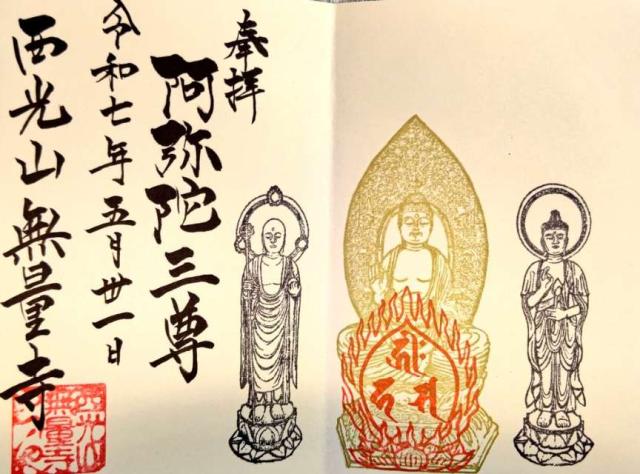 奉拝
阿弥陀三尊
令和七年五月卅一日
西光山無量寺